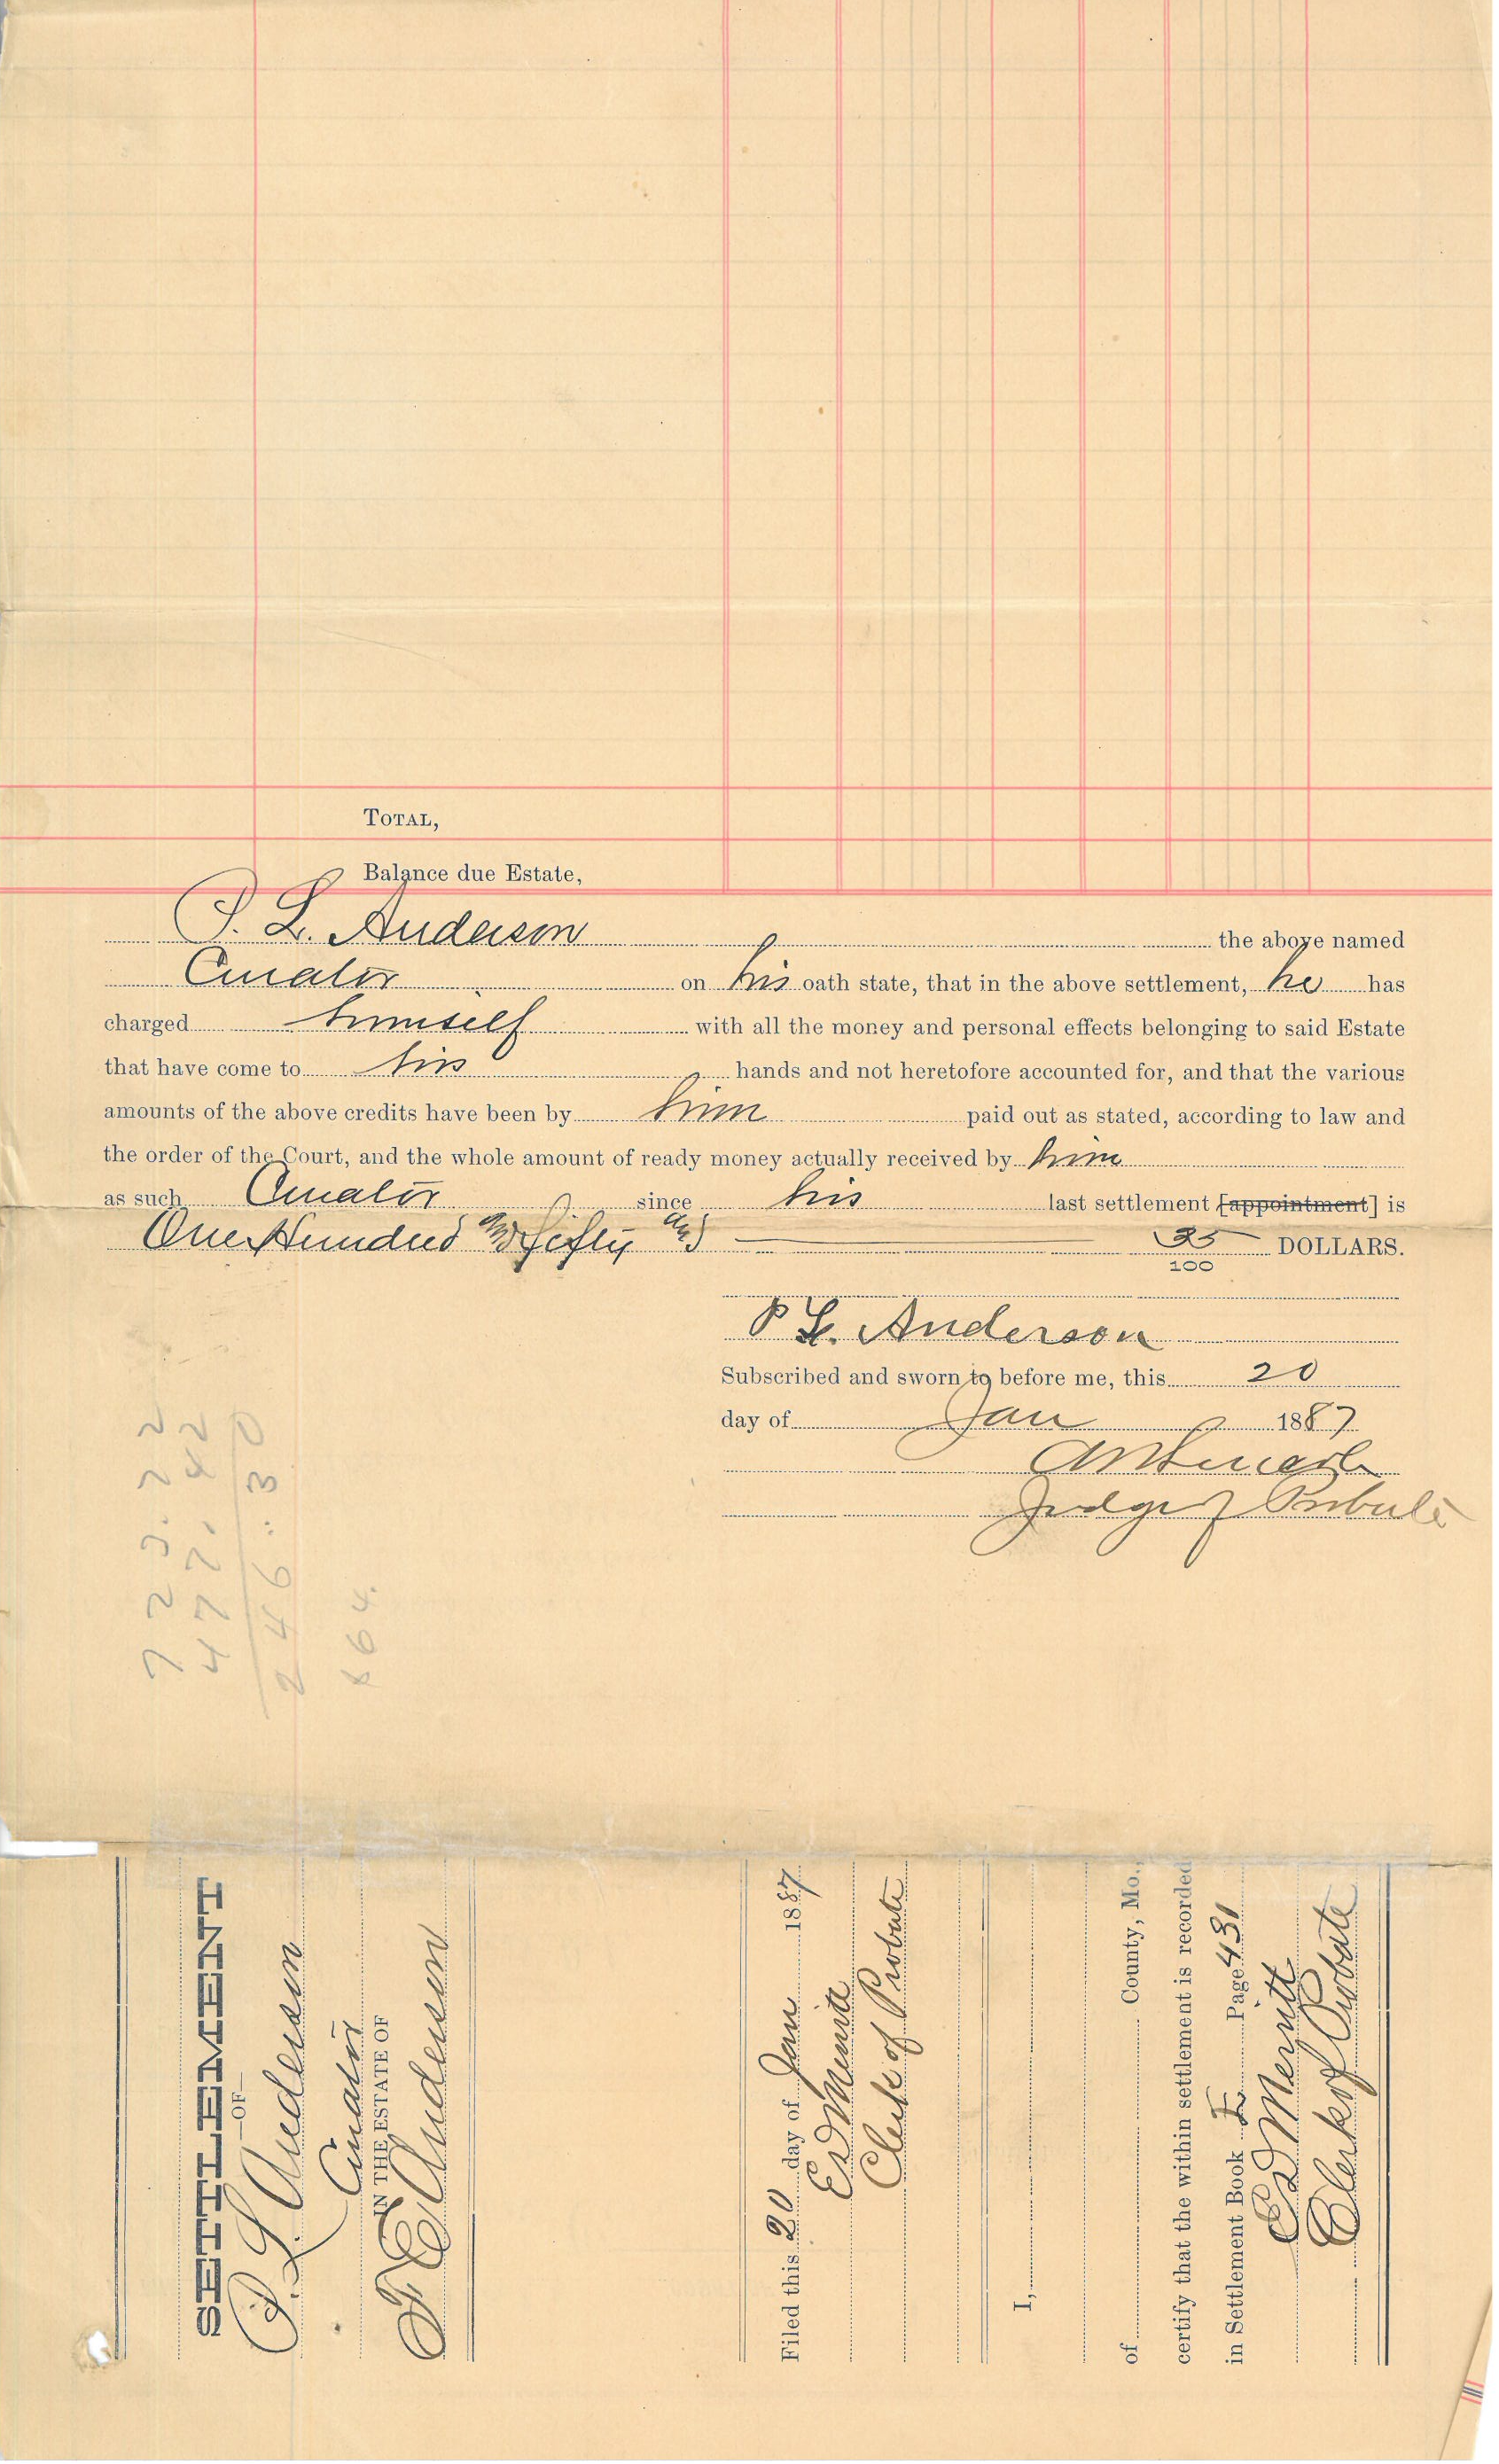 TOTAL,
Balance due Estate,
P. L. Anderson the above named
Curator on his oath state, that in the above settlement, he has
charged himself with all the money and personal effects belonging to said Estate
that have come to his hands and not heretofore accounted for, and that the various
amounts of the above credits have been by him paid out as stated, according to law and
the order of the Court, and the whole amount of ready money actually received by him
as such Curator since his last settlement [appointment] is
One Hundred and fifty and 35/100 DOLLARS.
P L. Anderson
Subscribed and sworn to before me, this 20
day of Jan 1887
Judge of Probate
723.22
477.42
246.30
SETTLEMENT
—OF—
P. L. Anderson
Curator
IN THE ESTATE OF
F E Anderson
Filed this 20 day of Jan 1887
Ed Merritt
Clerk of Probate
I,
of County, Mo.,
certify that the within settlement is recorded
in Settlement Book E Page 431
Ed Merritt
Clerk of Probate